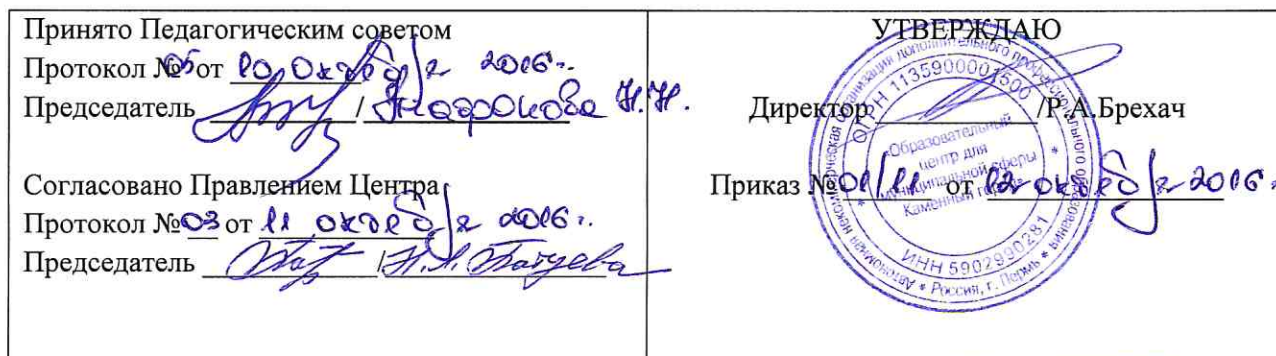 Принято Педагогическим советом
Протокол №05 от 10 октября 2016 г.
Председатель / Н.Н.
Согласовано Правлением Центра
Протокол №03 от 11 октября 2016 г.
Председатель /Н.А. Батуева
УТВЕРЖДАЮ
Директор /Р.А.Брехач
Приказ №01/11 от 12 октября 2016 г.
Автономная некоммерческая организация дополнительного профессионального образования
* Россия, г. Пермь *
ОГРН 1135900001500
ИНН 5902990281
"Образовательный
центр для
муниципальной сферы
Каменный город"